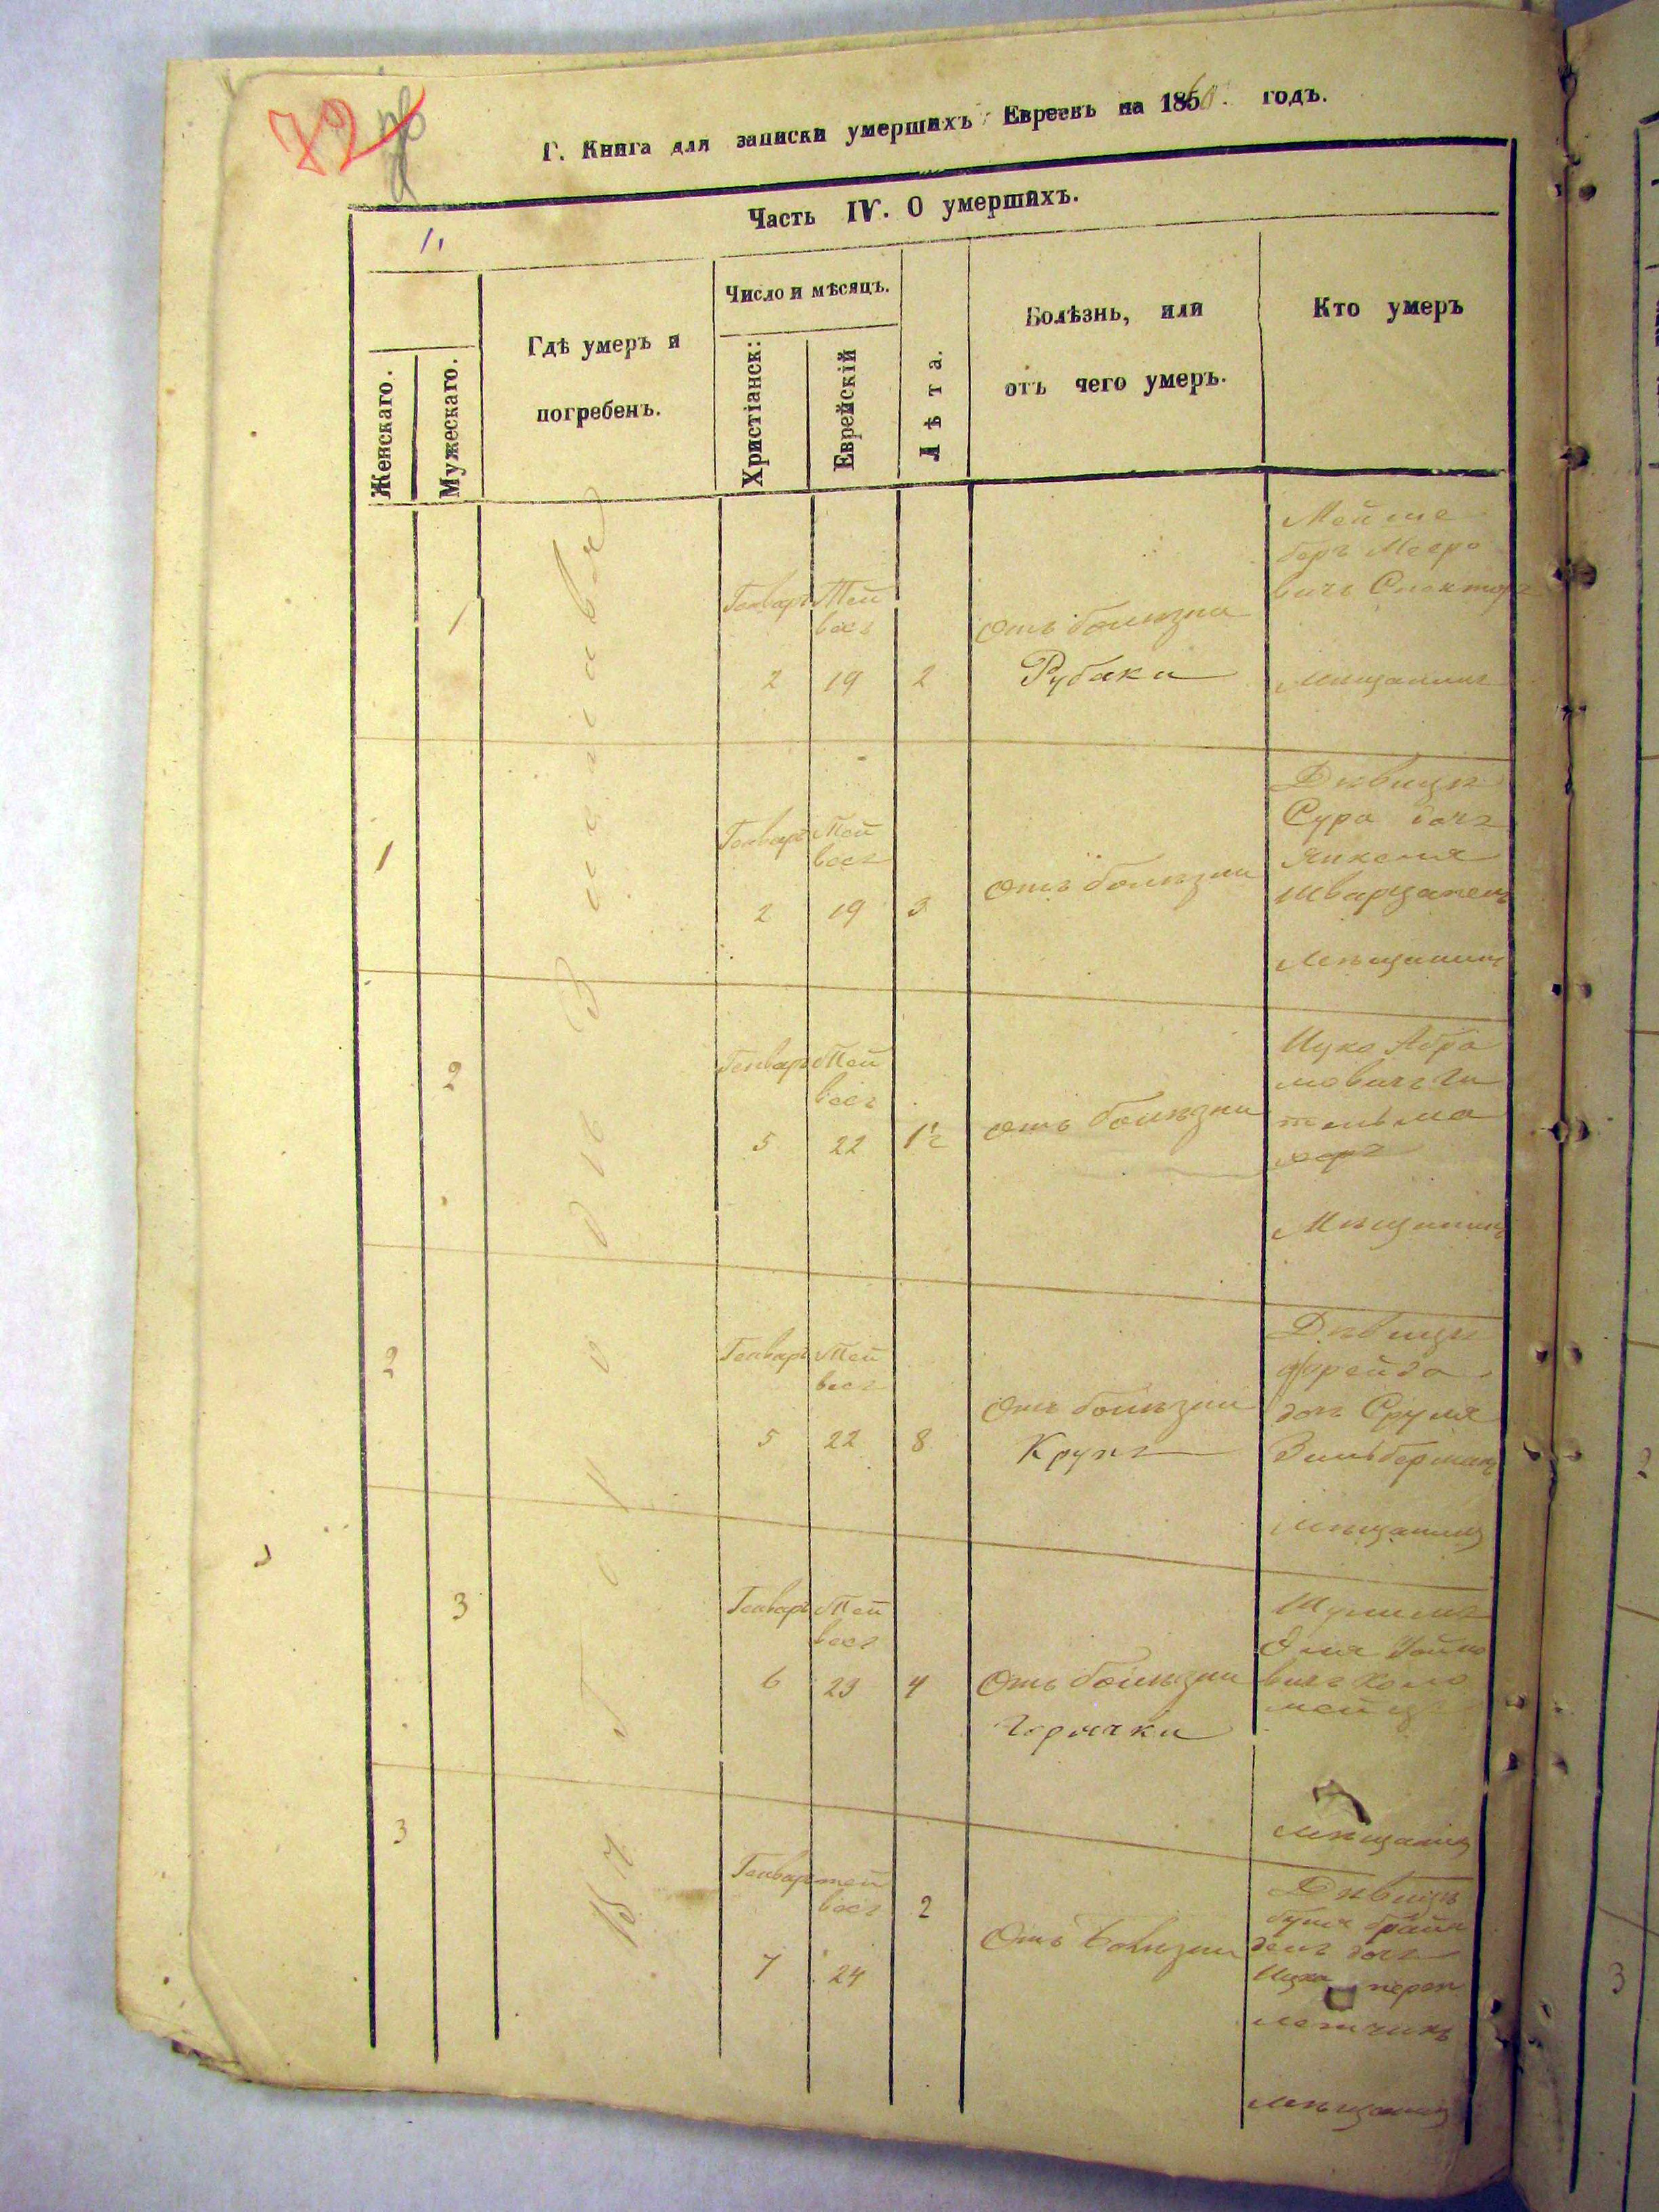 72
Г. Книга для записки умершихъ Евреевъ на 185 годъ.
Часть IV. О умершихъ.
1.
Женскаго.
Мужескаго.
Гдѣ умеръ и
погребенъ.
Число и мѣсяцъ.
Христіанск:
Еврейскій
Лѣта.
Болѣзнь, или
отъ чего умеръ.
Кто умеръ
Въ городѣ
1
Генваръ
2
Тей
весъ
19
2
Отъ болѣзни
Мойше
беръ Мееро
вичъ Спекторъ
мѣщанинъ
1
Генваръ
2
Тей
весъ
19
3
Отъ болѣзни
Дѣвица
Сура дочъ
Янкеля
мѣщанинъ
2
Генваръ
5
Тей
весъ
22
1½
Отъ болѣзни
Ицко Абра
мовичъ Ги
тельма
херъ
Мѣщанинъ
2
Генваръ
5
Тей
весъ
22
8
Отъ болѣзни
Крупъ
Дѣвица
Фрейда
дочъ Сруля
Зильберманъ
мѣщанинъ
3
Генваръ
6
Тей
весъ
23
4
Отъ болѣзни
Горячки
Шулимъ
вичъ Коло
меецъ
мѣщанинъ
3
Генваръ
7
тей
весъ
24
2
Отъ Болѣзни
Дѣвица
дочъ
Ицка переп
летчикъ
мѣщанинъ
2
3